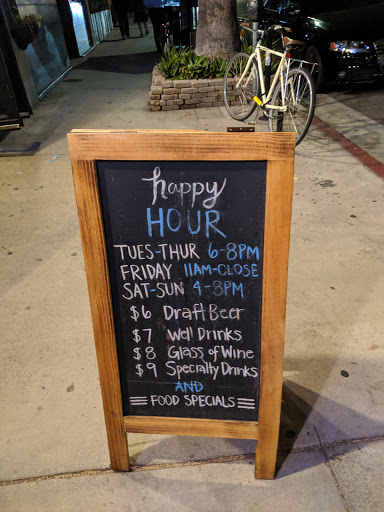 happy
HOUR
TUES-THUR 6-8PM
FRIDAY 11AM-CLOSE
SAT-SUN 4-8PM
$6 Draft Beer
$7 Well Drinks
$8 Glass of Wine
$9 Specialty Drinks
AND
FOOD SPECIALS